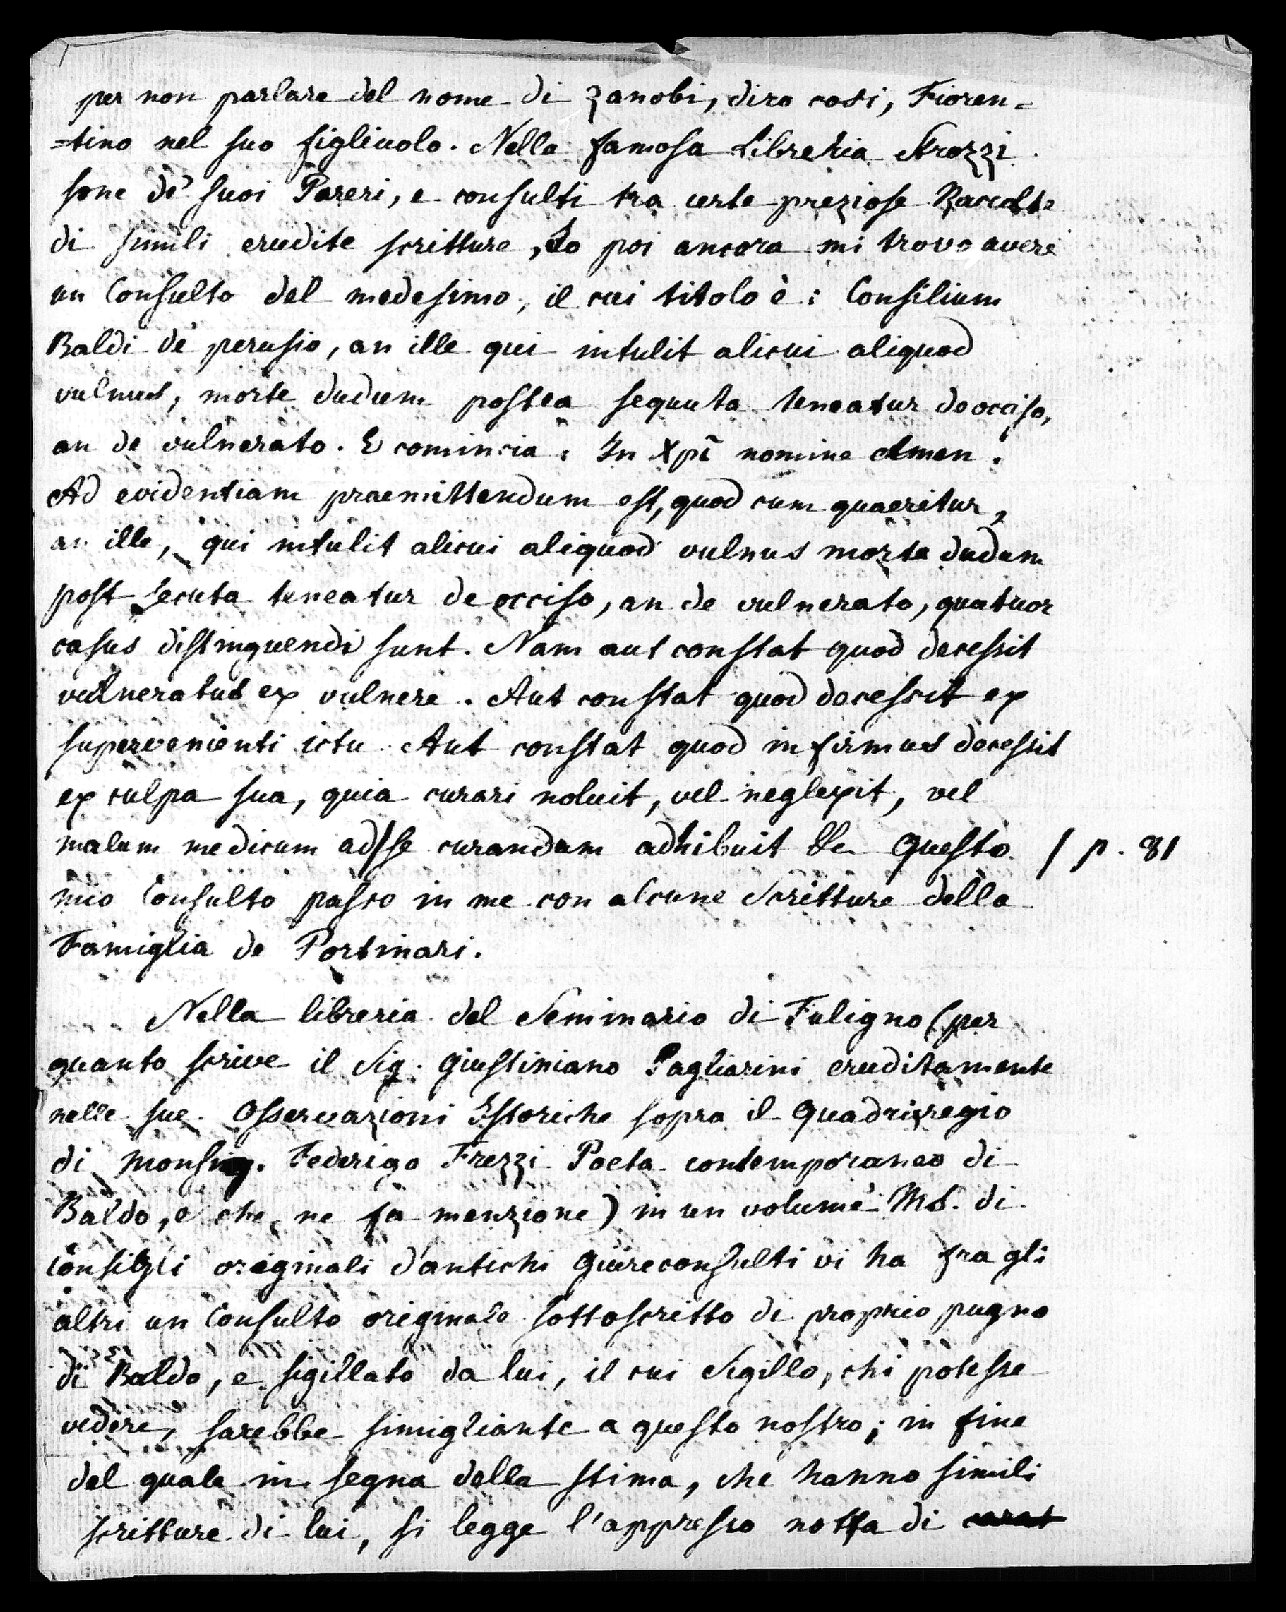 per non parlare del nome di Zanobi, diro cosi, Fioren=
=tino nel suo figliuolo. Nella famosa Libreria Strozzi
sono de' suoi Pareri, e consulti tra certe preziose Raccolte
di simili erudite scritture, Io poi ancora mi trovo avere
un Consulto del medesimo, il cui titolo è: Consilium
Baldi de perusio, an ille qui intulit alicui aliquod
vulnus, morte dudum postea sequuta teneatur de occiso,
an de vulnerato. E comincia: In Xpi nomine Amen.
Ad evidentiam praemittendum est, quod cum quaeritur,
an ille, qui intulit alicui aliquod vulnus morte dudum
post secuta teneatur de occiso, an de vulnerato, quatuor
casus distinguendi sunt. Nam aut constat quod decessit
vulneratus ex vulnere. Aut constat quod decessit ex
supervenienti ictu. Aut constat quod infirmus decessit
ex culpa sua, quia curari noluit, vel neglexit, vel
malum medicum ad/se curandum adhibuit &c. Questo / p. 81
mio Consulto passò in me con alcune Scritture della
Famiglia de Portinari.
Nella libreria del Seminario di Fuligno (per
quanto scrive il Sig. Giustiniano Pagliarini eruditamente
nelle sue Osservazioni Istoriche sopra il Quadriregio
di Monsig. Federigo Frezzi Poeta contemporaneo di
Baldo, e che ne fa menzione) in un volume MS. di
Consigli originali d'antichi Giureconsulti vi ha fra gli
altri un Consulto originale sottoscritto di proprio pugno
di Baldo, e sigillato da lui, il cui Sigillo, chi potesse
vedere, sarebbe simigliante a questo nostro; in fine
del quale in segno della stima, che hanno simili
scritture di lui, si legge l'appresso notta di